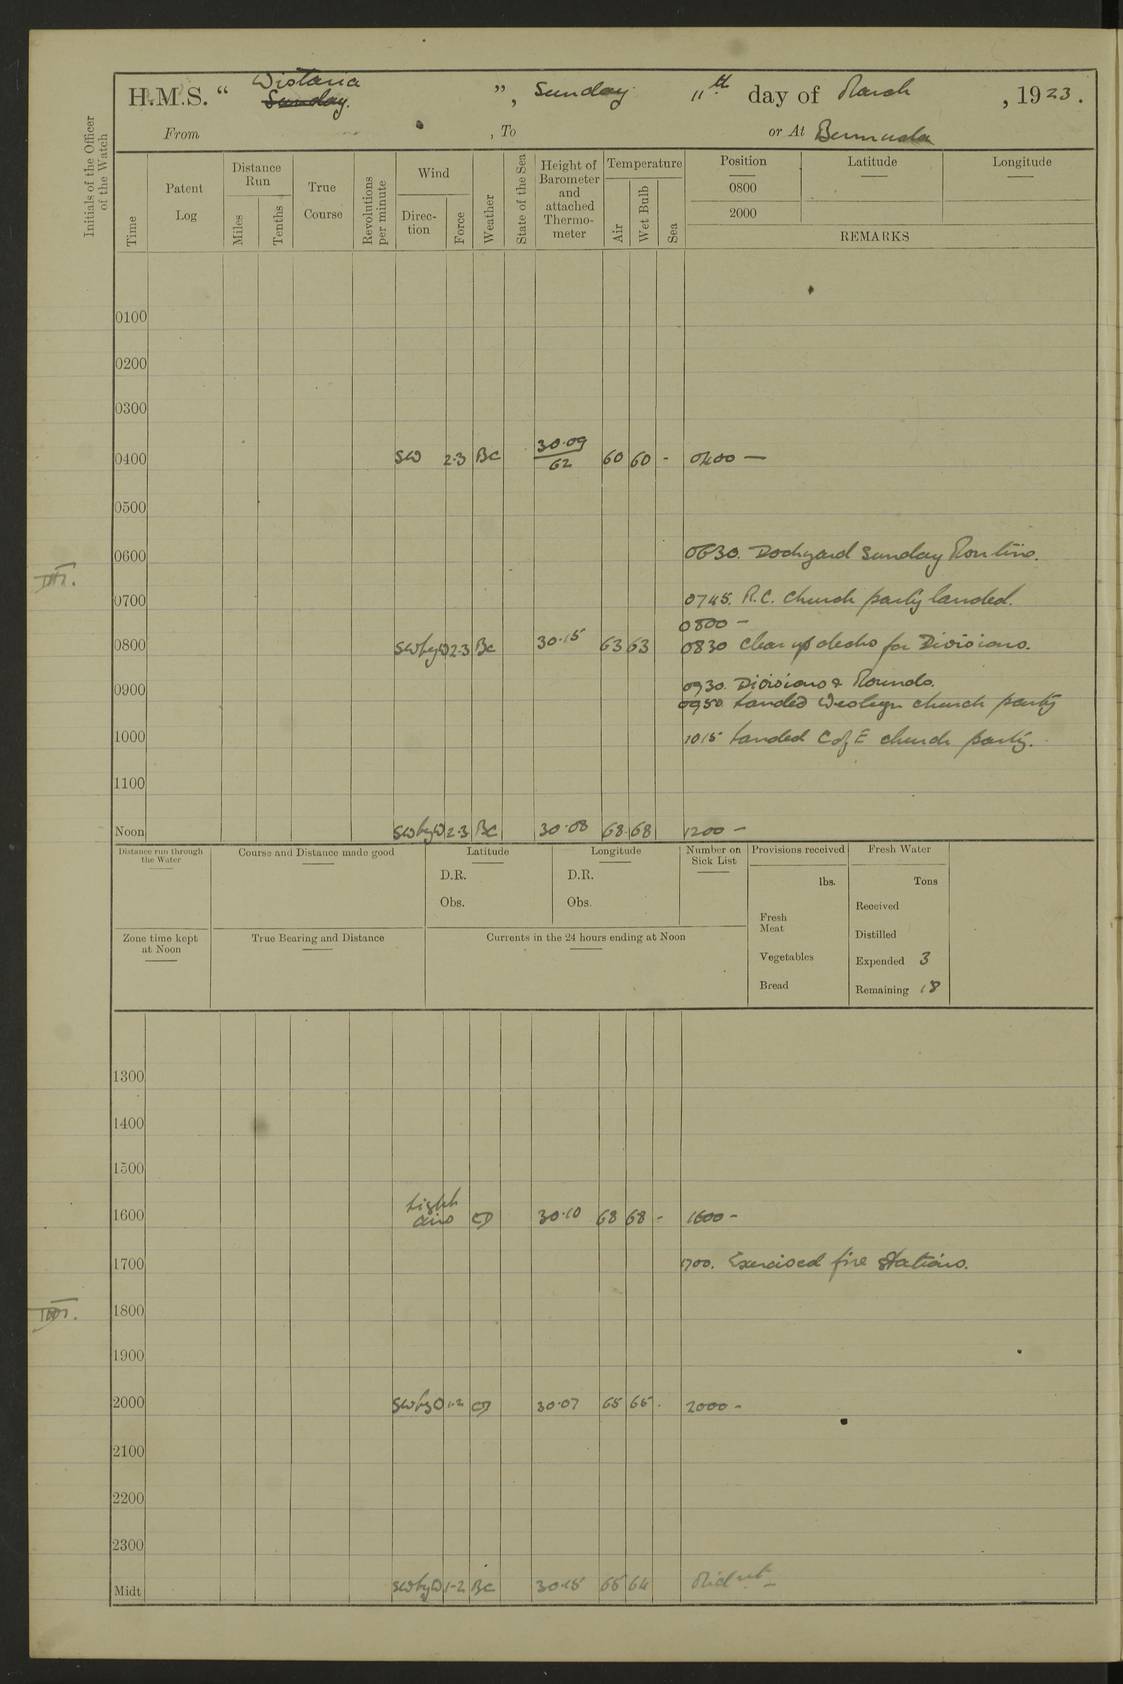 Wistaria
H.M.S. “ Sunday. ”, Sunday 11th day of March, 1923.
From , To or At Bermuda
Initials of the Officer of the Watch
Time
Patent Log
Distance Run
Miles
Tenths
True Course
Revolutions per minute
Wind
Direc-tion
Force
Weather
State of the Sea
Height of Barometer and attached Thermo-meter
Temperature
Air
Wet Bulb
Sea
Position Latitude Longitude
0800
2000
REMARKS
0100
0200
0300
0400 SW 2·3 BC 30·09/62 60 60 - 0400 —
0500
0600 0630. Dockyard Sunday Routine.
0700 0745. R.C. church party landed.
0800 —
0800 SWbyW 2·3 BC 30·15 63 63 0830 Clear up decks for Divisions.
0900 0930. Divisions & Rounds.
0950 Landed Wesleyn church party
1000 1015 Landed C of E church party.
1100
Noon SWbyW 2·3 BC 30·08 68 68 1200 —
Distance run through the Water
Course and Distance made good
Latitude
D.R.
Obs.
Longitude
D.R.
Obs.
Number on Sick List
Provisions received
lbs.
Fresh Meat
Vegetables
Bread
Fresh Water
Tons
Received
Distilled
Expended 3
Remaining 18
Zone time kept at Noon
True Bearing and Distance
Currents in the 24 hours ending at Noon
1300
1400
1500
1600 Light airs 30·10 68 68 - 1600 -
1700 1700. Exercised fire stations.
1800
1900
2000 1·2 30·07 65 65 . 2000 -
2100
2200
2300
Midt SWbyW 1-2 BC 30·15 65 64 Midnt -